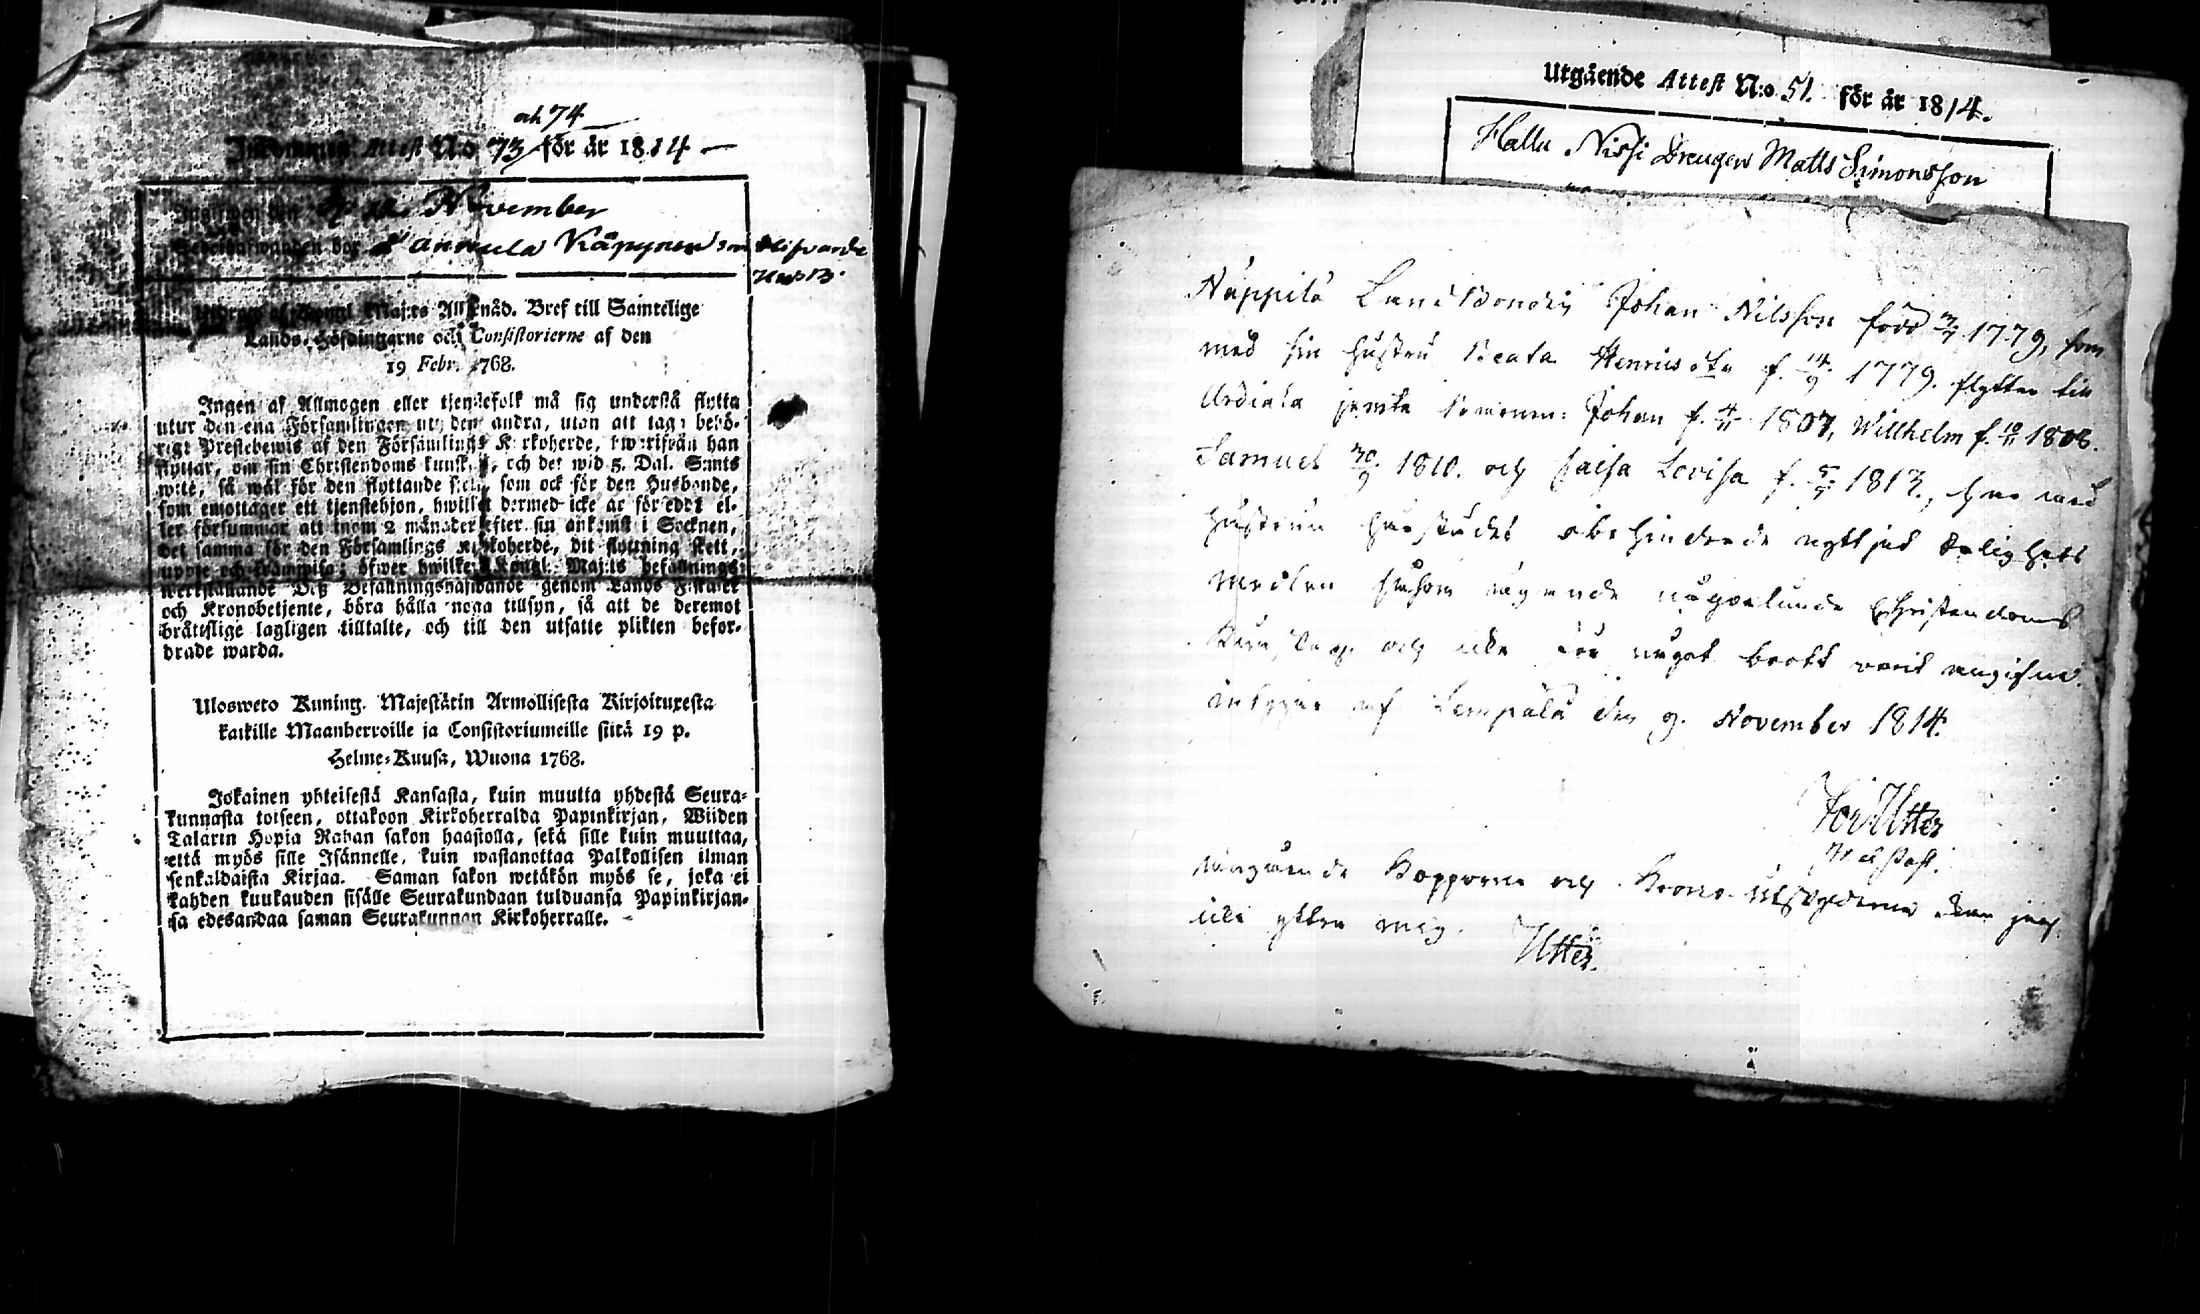 och 74
Attest N:o 73 för år 1814
November
Käpynen
af Kongl. Maj:ts Allernåd. Bref till Samtelige
Lands-Höfdingarne och Consistorierne af den
19 Febr. 1768.
Ingen af Allmogen eller tjenstefolk må sig understå flytta
utur den ena Församlingen uti den andra, utan att taga behö-
rigt Prestebewis af den Församlings Kyrkoherde, hwarifrån han
flyttar, om sin Christendoms kunskap, och det wid 5. Dal. S:mts
wite, så wäl för den flyttande sielf, som ock för den Husbonde,
som emottager ett tjenstehjon, hwilket dermed icke är försedt el-
ler försummar att inom 2 månader efter sin ankomst i Socknen,
det samma för den Församlings Kyrkoherde, dit flyttning skett,
uppte och framwisa; öfwer hwilket Kongl. Maj:ts befallnings
werkställande Deß Befallningshafwande genom Lands Fiskaler
och Kronobetjente, böra hålla noga tillsyn, så att de deremot
bråttslige lagligen tilltalte, och till den utsatte plikten befor-
drade warda.
Ulosweto Kuning. Majestätin Armollisesta Kirjoituxesta
kaikille Maanherroille ja Consistoriumeille siitä 19 p.
Helme-Kuusa, Wuona 1768.
Jokainen yhteisestä Kansasta, kuin muutta yhdestä Seura-
kunnasta toiseen, ottakoon Kirkoherralda Papinkirjan, Wiiden
Talarin Hopia Rahan sakon haastolla, sekä sille kuin muuttaa,
että myös sille Isännelle, kuin wastanottaa Palkollisen ilman
senkaldaista Kirjaa. Saman sakon wetäkön myös se, joka ei
kahden kuukauden sisälle Seurakundaan tulduansa Papinkirjan-
sa edesandaa saman Seurakunnan Kirkoherralle.
Utgående Attest N:o 51. för år 1814.
Hallu Nissi Drengen Matts Simonsson
Näppilä Landbonden Johan Nilsson född 1779, som
med sin hustru Beata Henricsdtr f. 14/9 1779. flyttar till
Urdiala jemte barnen: Johan f. 4/11 1807, Willhelm f. 10/11 1808.
Samuel 30/9 1810. och Caisa Lovisa f. 1813., har med
hustrun obehindrade nyttjat Salighets
medlen såsom ägande någorlunda Christendoms
Kunskap och icke för något brott varit angifne.
intygar af Lempälä den 9. November 1814.
Utter
V. Past.
Rörande Kopporne och Krono Utskylderne kan jag
icke yttra mig. Utter.